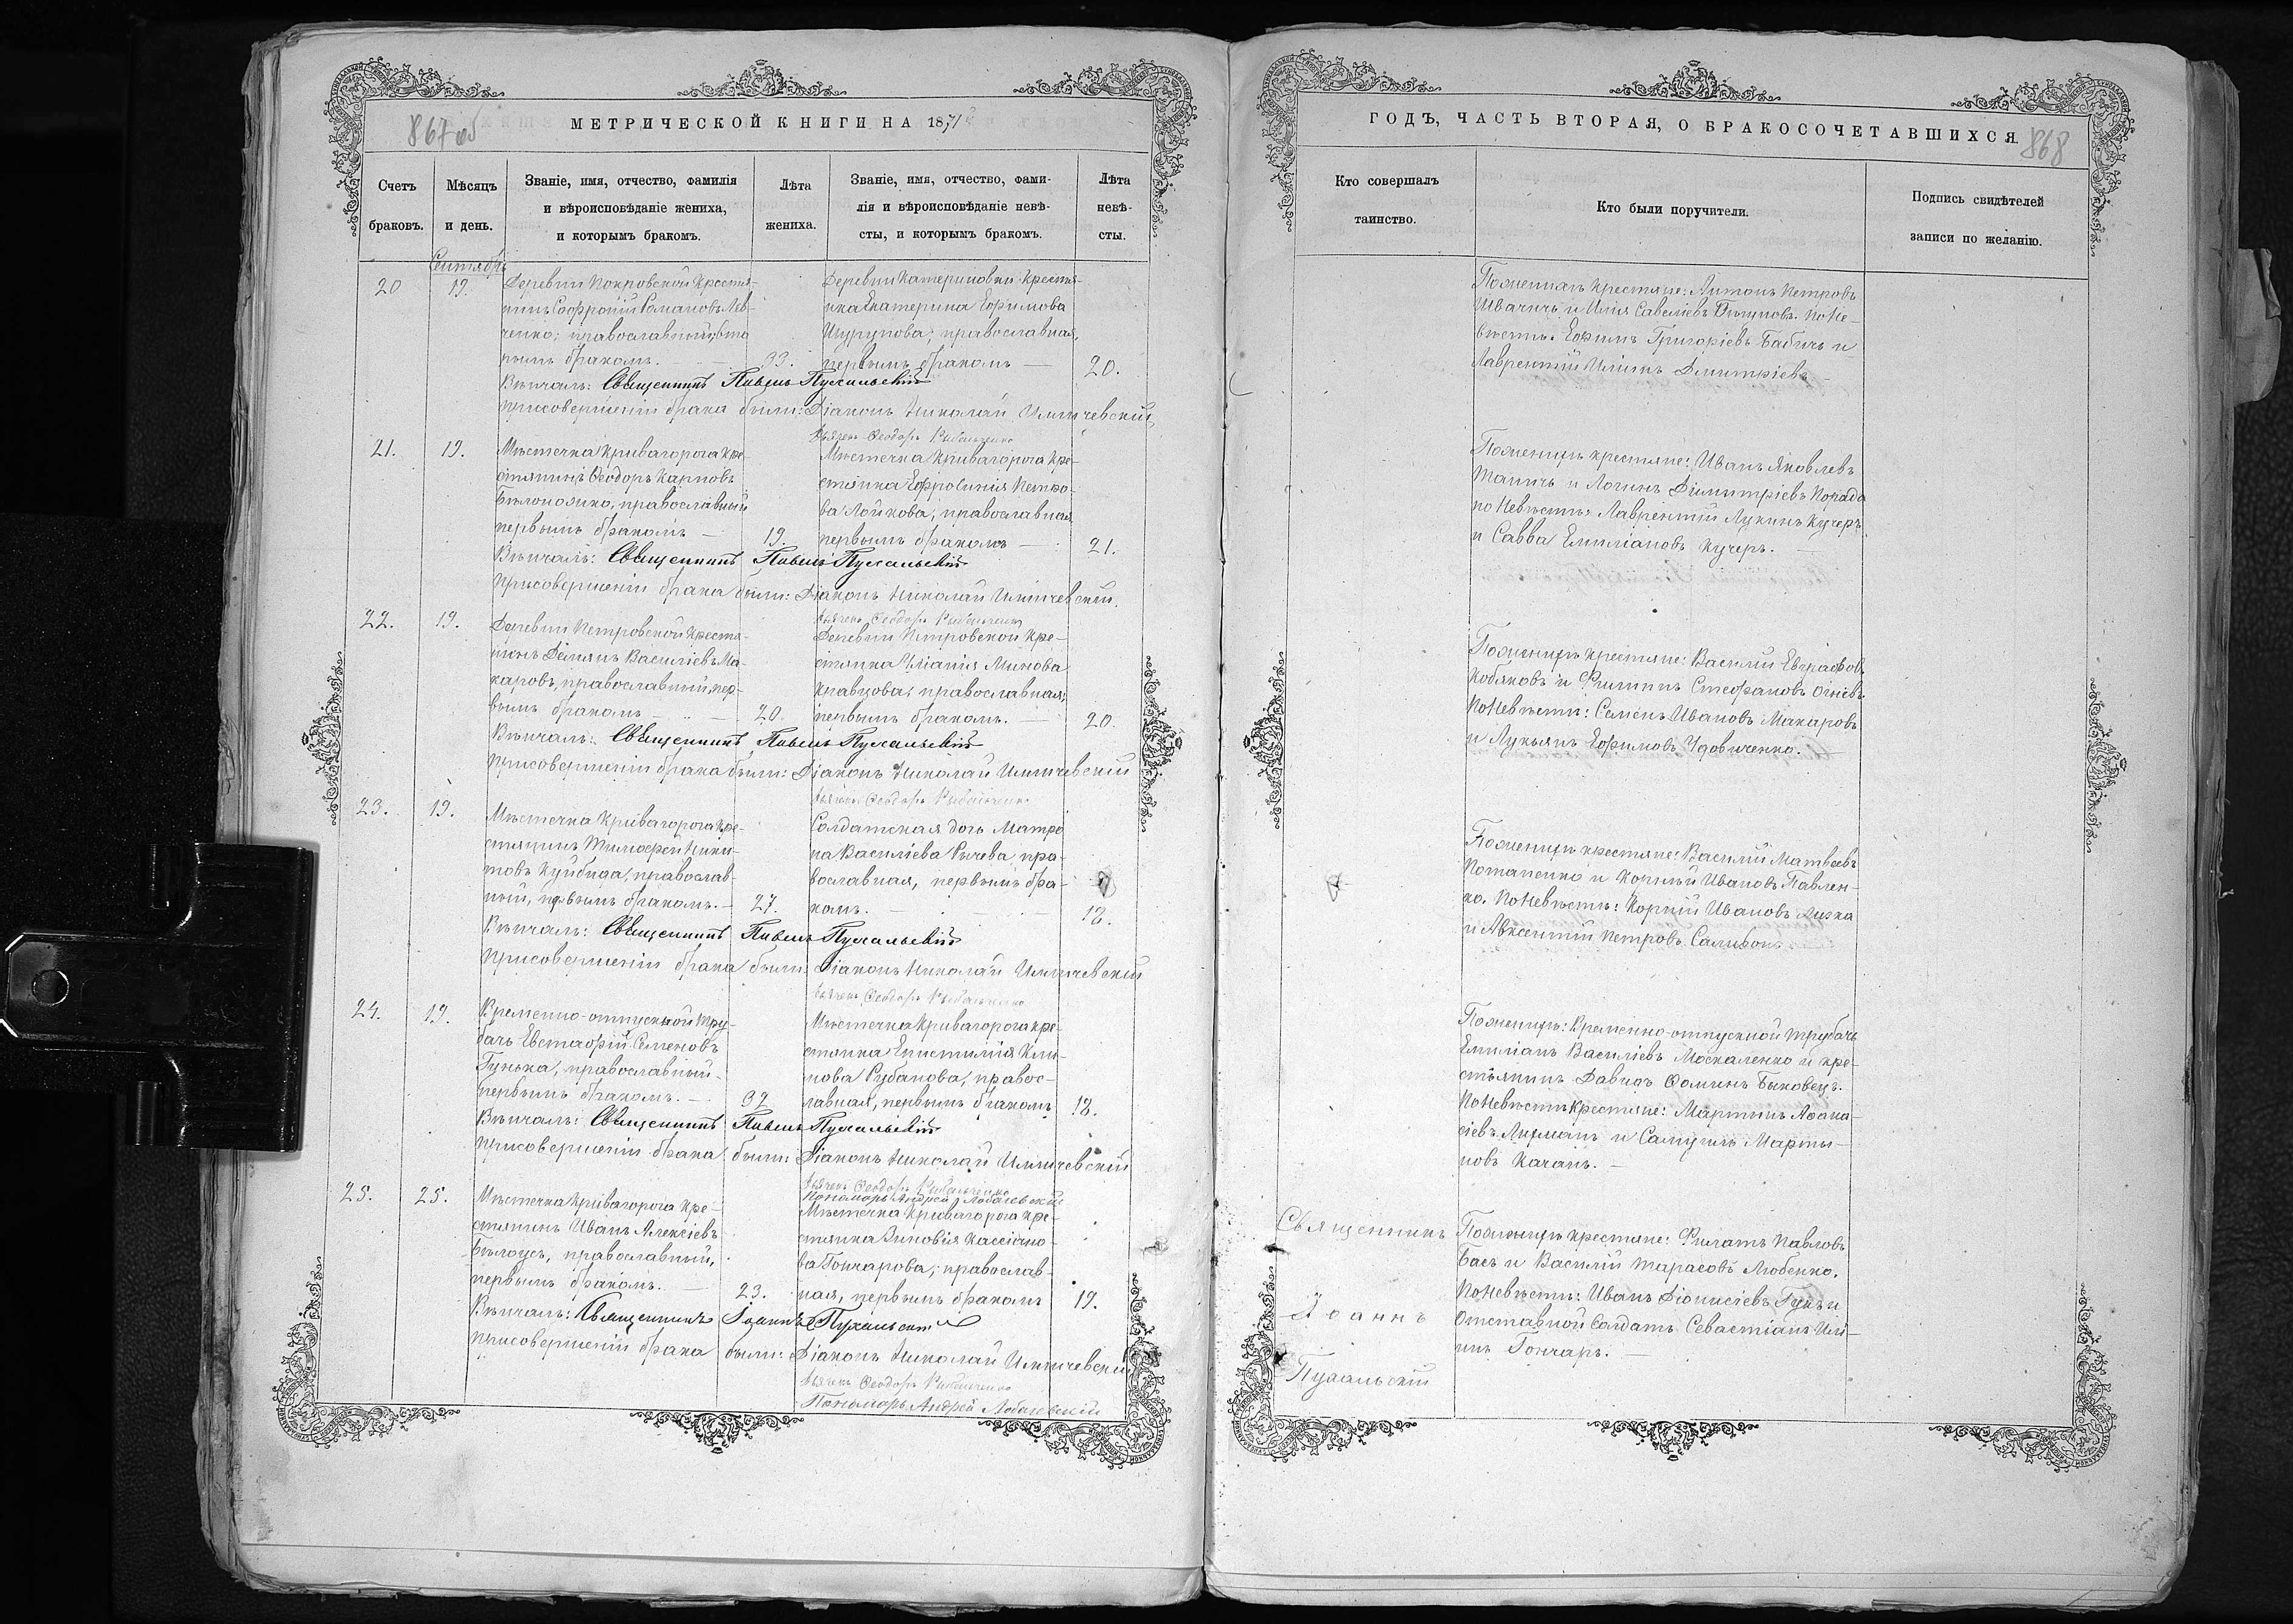 867 об
МЕТРИЧЕСКОЙ КНИГИ НА 1871
Счетъ браковъ.
Мѣсяцъ и день.
Званіе, имя, отчество, фамилія
и вѣроисповѣданіе жениха,
и которымъ бракомъ.
Лѣта жениха.
Званіе, имя, отчество, фами-
лія и вѣроисповѣданіе невѣ-
сты, и которымъ бракомъ.
Лѣта невѣ-
сты.
Сентябрь
20
19.
Деревни Покровской крестья-
нинъ Софроній Романовъ Лев-
ченко; православный, вто
рымъ бракомъ. —
33.
Деревни Катериновки крестья-
нка Екатерина Ефимова
Шурупова; православная,
первымъ бракомъ —
20.
Вѣнчалъ: Священникъ Павелъ Пухальскій
При совершеніи брака были: Діаконъ Николай
Дьячекъ Ѳеодоръ Рыбальченко
21.
19.
Мѣстечка Кривагорога кре-
стянинъ Ѳеодоръ Карповъ
Бѣлоножко, православный
первымъ бракомъ —
19.
Мѣстечка Кривагорога кре-
стянка Ефросинія Петро-
ва Лойкова, православная
первымъ бракомъ —
21.
Вѣнчалъ: Священникъ Павелъ Пухальскій
При совершеніи брака были: Діаконъ Николай
Дьячекъ Ѳеодоръ Рыбальченко
22.
19.
Деревни Петровской крестя-
нинъ Деміянъ Василіевъ Ма-
каровъ, православный, пер-
вымъ бракомъ —
20.
Деревни Петровской кре-
стянка Уліанія Минова
Кравцова, православная,
первымъ бракомъ.
20.
Вѣнчалъ: Священникъ Павелъ Пухальскій
При совершеніи брака были: Діаконъ Николай
Дьячекъ Ѳеодоръ Рыбальченко
23.
19.
Мѣстечка Кривагорога кре-
стянинъ Тимофей Ники-
товъ Куйбида, православ-
ный, первымъ бракомъ. —
27.
Солдатская дочь Матро
на Василіева Рычева, пра-
вославная, первымъ бра-
комъ. —
18.
Вѣнчалъ: Священникъ Павелъ Пухальскій
При совершеніи брака были: Діаконъ Николай
Дьячекъ Ѳеодоръ Рыбальченко
24.
19.
Временно-отпускной тру-
бачъ Евстафій Семеновъ
Гунька, православный
первымъ бракомъ. —
32
Мѣстечка Кривагорога кре-
стянка Епистимія Кли-
мова Рубанова, правос-
лавная, первымъ бракомъ
18.
Вѣнчалъ: Священникъ Павелъ Пухальскій
При совершеніи брака были: Діаконъ Николай
Дьячекъ Ѳеодоръ Рыбальченко
Пономарь Андрей Лобачевскій
25.
25.
Мѣстечка Кривагорога кре-
стянинъ Иванъ Алексіевъ
Бѣлоусъ, православный,
первымъ бракомъ. —
23.
Мѣстечка Кривагорога кре-
стянка Зиновія Кассіано-
ва Гончарова, православ-
ная, первымъ бракомъ
19.
Вѣнчалъ: Священникъ Іоаннъ Пухальскій
При совершеніи брака были: Діаконъ Николай
Дьячекъ Ѳеодоръ Рыбальченко
Пономарь Андрей Лобачевскій
ГОДЪ, ЧАСТЬ ВТОРАЯ, О БРАКОСОЧЕТАВШИХСЯ.
868
Кто совершалъ таинство.
Кто были поручители.
Подпись свидѣтелей
записи по желанію.
По женихѣ крестяне: Антонъ Петровъ
Ивачичъ и Илія Савеліевъ По не-
вѣстѣ: Ефимъ Григоріевъ Бабичъ и
Лаврентій Илiинъ Димитріевъ
По женихѣ крестяне: Иванъ Яковлевъ
и Логинъ Димитріевъ Порада
по невѣстѣ: Лаврентій Лукинъ Кучеръ
и Савва Емиліановъ Кучеръ. —
По женихѣ крестяне: Василій Евграфовъ
Кобяковъ и Филиппъ Стефановъ
По невѣстѣ: Семенъ Ивановъ Макаровъ
и Лукьянъ Ефимовъ Удовиченко. —
По женихѣ крестяне: Василій Матвѣевъ
Потапенко и Корній Ивановъ Павлен-
ко. По невѣстѣ: Корній Ивановъ
и Авксентій Петровъ
По женихѣ: Временно-отпускной трубачъ
Емиліанъ Василіевъ Москаленко и кре-
стьянинъ Давидъ Ѳоминъ Быковецъ.
По невѣстѣ крестяне: Мартинъ Аѳана-
сіевъ и Самуилъ Марты-
новъ Качанъ. —
Священникъ
Іоаннъ
Пухальскій
По женихѣ крестяне: Филатъ Павловъ
Басъ и Василій Тарасовъ Любенко.
По невѣстѣ: Иванъ Діонисіевъ и
отставной солдатъ Севастіанъ Илі-
инъ Гончаръ. —